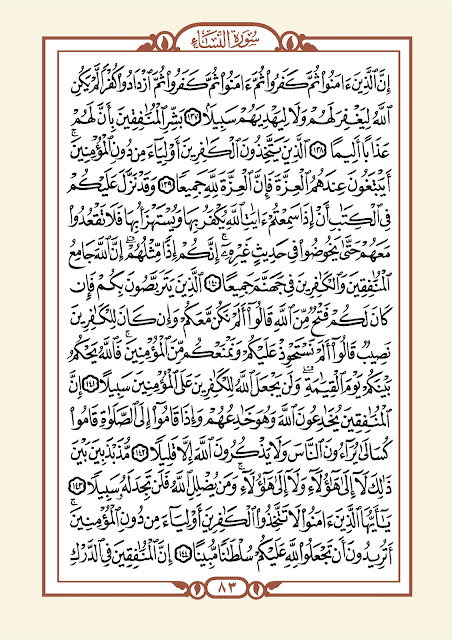 سُورَةُ النِّسَاءِ
إِنَّ ٱلَّذِينَ ءَامَنُوا۟ ثُمَّ كَفَرُوا۟ ثُمَّ ءَامَنُوا۟ ثُمَّ كَفَرُوا۟ ثُمَّ ٱزْدَادُوا۟ كُفْرًا لَّمْ يَكُنِ
ٱللَّهُ لِيَغْفِرَ لَهُمْ وَلَا لِيَهْدِيَهُمْ سَبِيلًۢا ١٣٧ بَشِّرِ ٱلْمُنَٰفِقِينَ بِأَنَّ لَهُمْ
عَذَابًا أَلِيمًا ١٣٨ ٱلَّذِينَ يَتَّخِذُونَ ٱلْكَٰفِرِينَ أَوْلِيَآءَ مِن دُونِ ٱلْمُؤْمِنِينَ ۚ
أَيَبْتَغُونَ عِندَهُمُ ٱلْعِزَّةَ فَإِنَّ ٱلْعِزَّةَ لِلَّهِ جَمِيعًا ١٣٩ وَقَدْ نَزَّلَ عَلَيْكُمْ
فِى ٱلْكِتَٰبِ أَنْ إِذَا سَمِعْتُمْ ءَايَٰتِ ٱللَّهِ يُكْفَرُ بِهَا وَيُسْتَهْزَأُ بِهَا فَلَا تَقْعُدُوا۟
مَعَهُمْ حَتَّىٰ يَخُوضُوا۟ فِى حَدِيثٍ غَيْرِهِۦٓ ۚ إِنَّكُمْ إِذًا مِّثْلُهُمْ ۗ إِنَّ ٱللَّهَ جَامِعُ
ٱلْمُنَٰفِقِينَ وَٱلْكَٰفِرِينَ فِى جَهَنَّمَ جَمِيعًا ١٤٠ ٱلَّذِينَ يَتَرَبَّصُونَ بِكُمْ فَإِن
كَانَ لَكُمْ فَتْحٌ مِّنَ ٱللَّهِ قَالُوٓا۟ أَلَمْ نَكُن مَّعَكُمْ وَإِن كَانَ لِلْكَٰفِرِينَ
نَصِيبٌ قَالُوٓا۟ أَلَمْ نَسْتَحْوِذْ عَلَيْكُمْ وَنَمْنَعْكُم مِّنَ ٱلْمُؤْمِنِينَ ۚ فَٱللَّهُ يَحْكُمُ
بَيْنَكُمْ يَوْمَ ٱلْقِيَٰمَةِ ۗ وَلَن يَجْعَلَ ٱللَّهُ لِلْكَٰفِرِينَ عَلَى ٱلْمُؤْمِنِينَ سَبِيلًا ١٤١ إِنَّ
ٱلْمُنَٰفِقِينَ يُخَٰدِعُونَ ٱللَّهَ وَهُوَ خَٰدِعُهُمْ وَإِذَا قَامُوٓا۟ إِلَى ٱلصَّلَوٰةِ قَامُوا۟
كُسَالَىٰ يُرَآءُونَ ٱلنَّاسَ وَلَا يَذْكُرُونَ ٱللَّهَ إِلَّا قَلِيلًا ١٤٢ مُّذَبْذَبِينَ بَيْنَ
ذَٰلِكَ لَآ إِلَىٰ هَٰٓؤُلَآءِ وَلَآ إِلَىٰ هَٰٓؤُلَآءِ ۚ وَمَن يُضْلِلِ ٱللَّهُ فَلَن تَجِدَ لَهُۥ سَبِيلًا ١٤٣
يَٰٓأَيُّهَا ٱلَّذِينَ ءَامَنُوا۟ لَا تَتَّخِذُوا۟ ٱلْكَٰفِرِينَ أَوْلِيَآءَ مِن دُونِ ٱلْمُؤْمِنِينَ ۚ
أَتُرِيدُونَ أَن تَجْعَلُوا۟ لِلَّهِ عَلَيْكُمْ سُلْطَٰنًا مُّبِينًا ١٤٤ إِنَّ ٱلْمُنَٰفِقِينَ فِى ٱلدَّرْكِ
٨٣